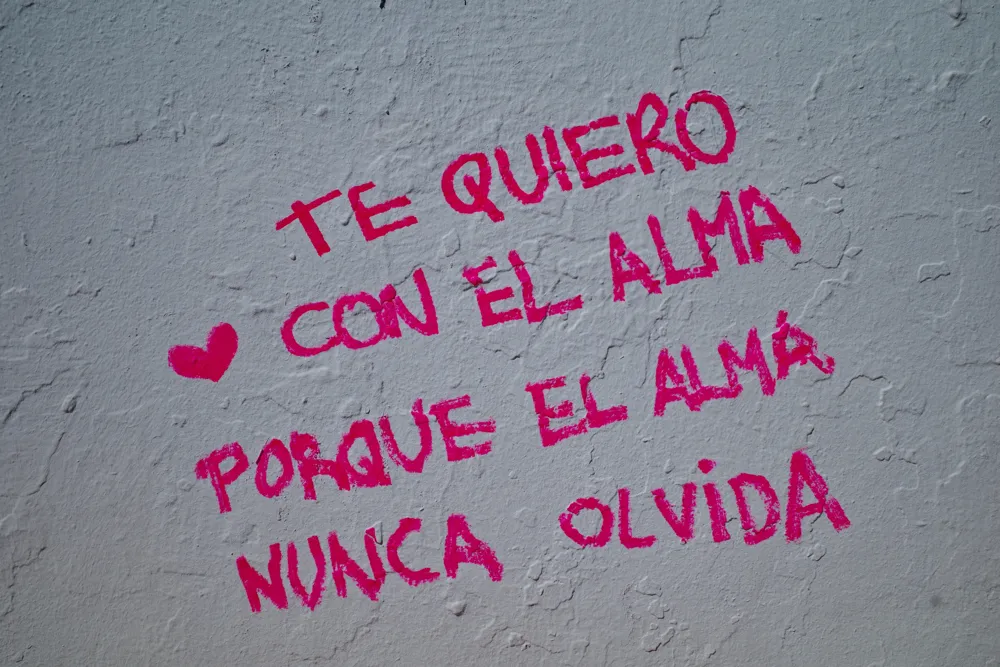 TE QUIERO
CON EL ALMA
PORQUE EL ALMA
NUNCA OLViDA